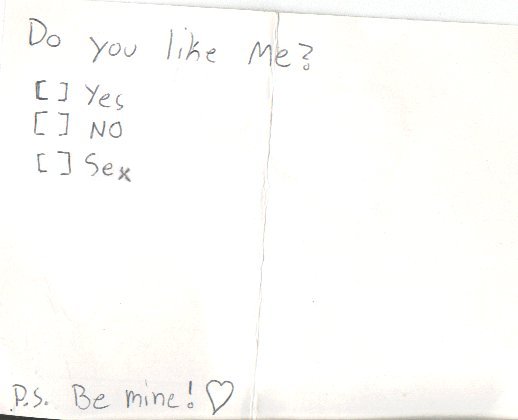 Do you like Me?
[ ] Yes
[ ] NO
[ ] Sex
P.S. Be mine! ♡